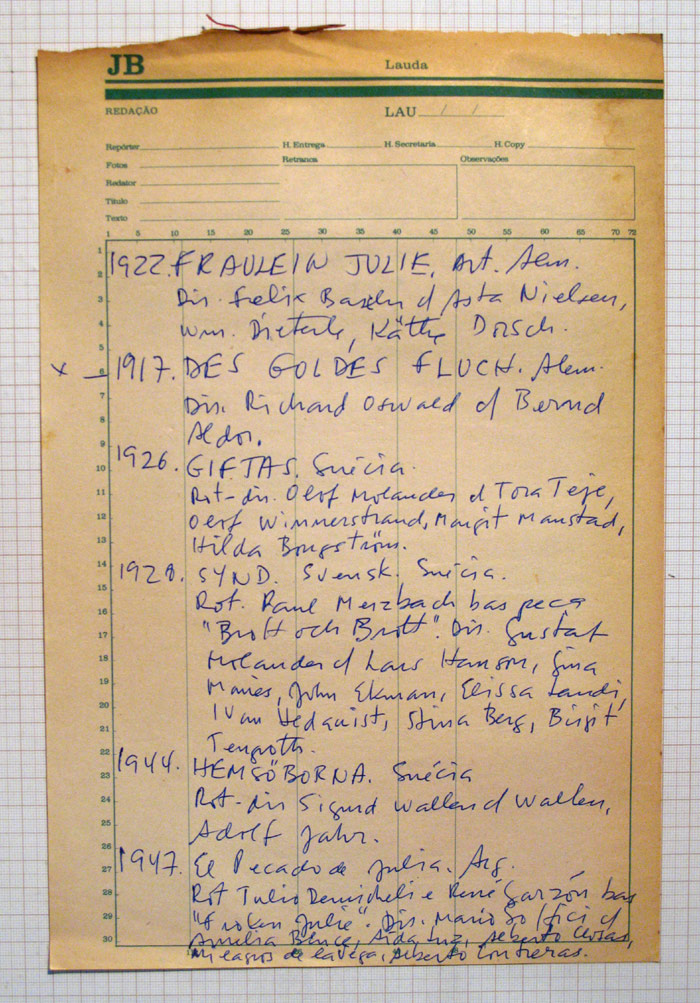 JB
Lauda
REDAÇÃO
LAU / /
Repórter H. Entrega H. Secretaria H. Copy
Fotos Retranca Observações
Redator
Título
Texto
1 5 10 15 20 25 30 35 40 45 50 55 60 65 70 72
1922. FRAULEIN JULIE. Art. Alem.
Dir. Felix Basch c/ Asta Nielsen,
Wm. Dieterle, Käthe Dorsch.
x — 1917. DES GOLDES FLUCH. Alem.
Dir. Richard Oswald c/ Bernd
Aldor.
1926. GIFTAS. Suécia.
Rot-dir. Olof Molander c/ Tora Teje,
Olof Winnerstrand, Margit Manstad,
Hilda Borgström.
1928. SYND. Svensk. Suécia.
Rot. Paul Merzbach bas peça
"Brott och Brott". Dir. Gustaf
Molander c/ Lars Hanson, Gina
Manès, John Ekman, Elissa Landi,
Ivan Hedqvist, Stina Berg, Birgit
Tengroth.
1944. HEMSÖBORNA. Suécia
Rot-dir Sigurd Wallen c/ Wallen,
Adolf Jahr.
1947. El Pecado de Julia. Arg.
Rot Tulio Demicheli e René Garzón bas
"Froken Julie". Dir. Mario Soffici c/
Amelia Bence, Aida Luz, Alberto Closas,
Milagros de la Vega, Alberto Contreras.